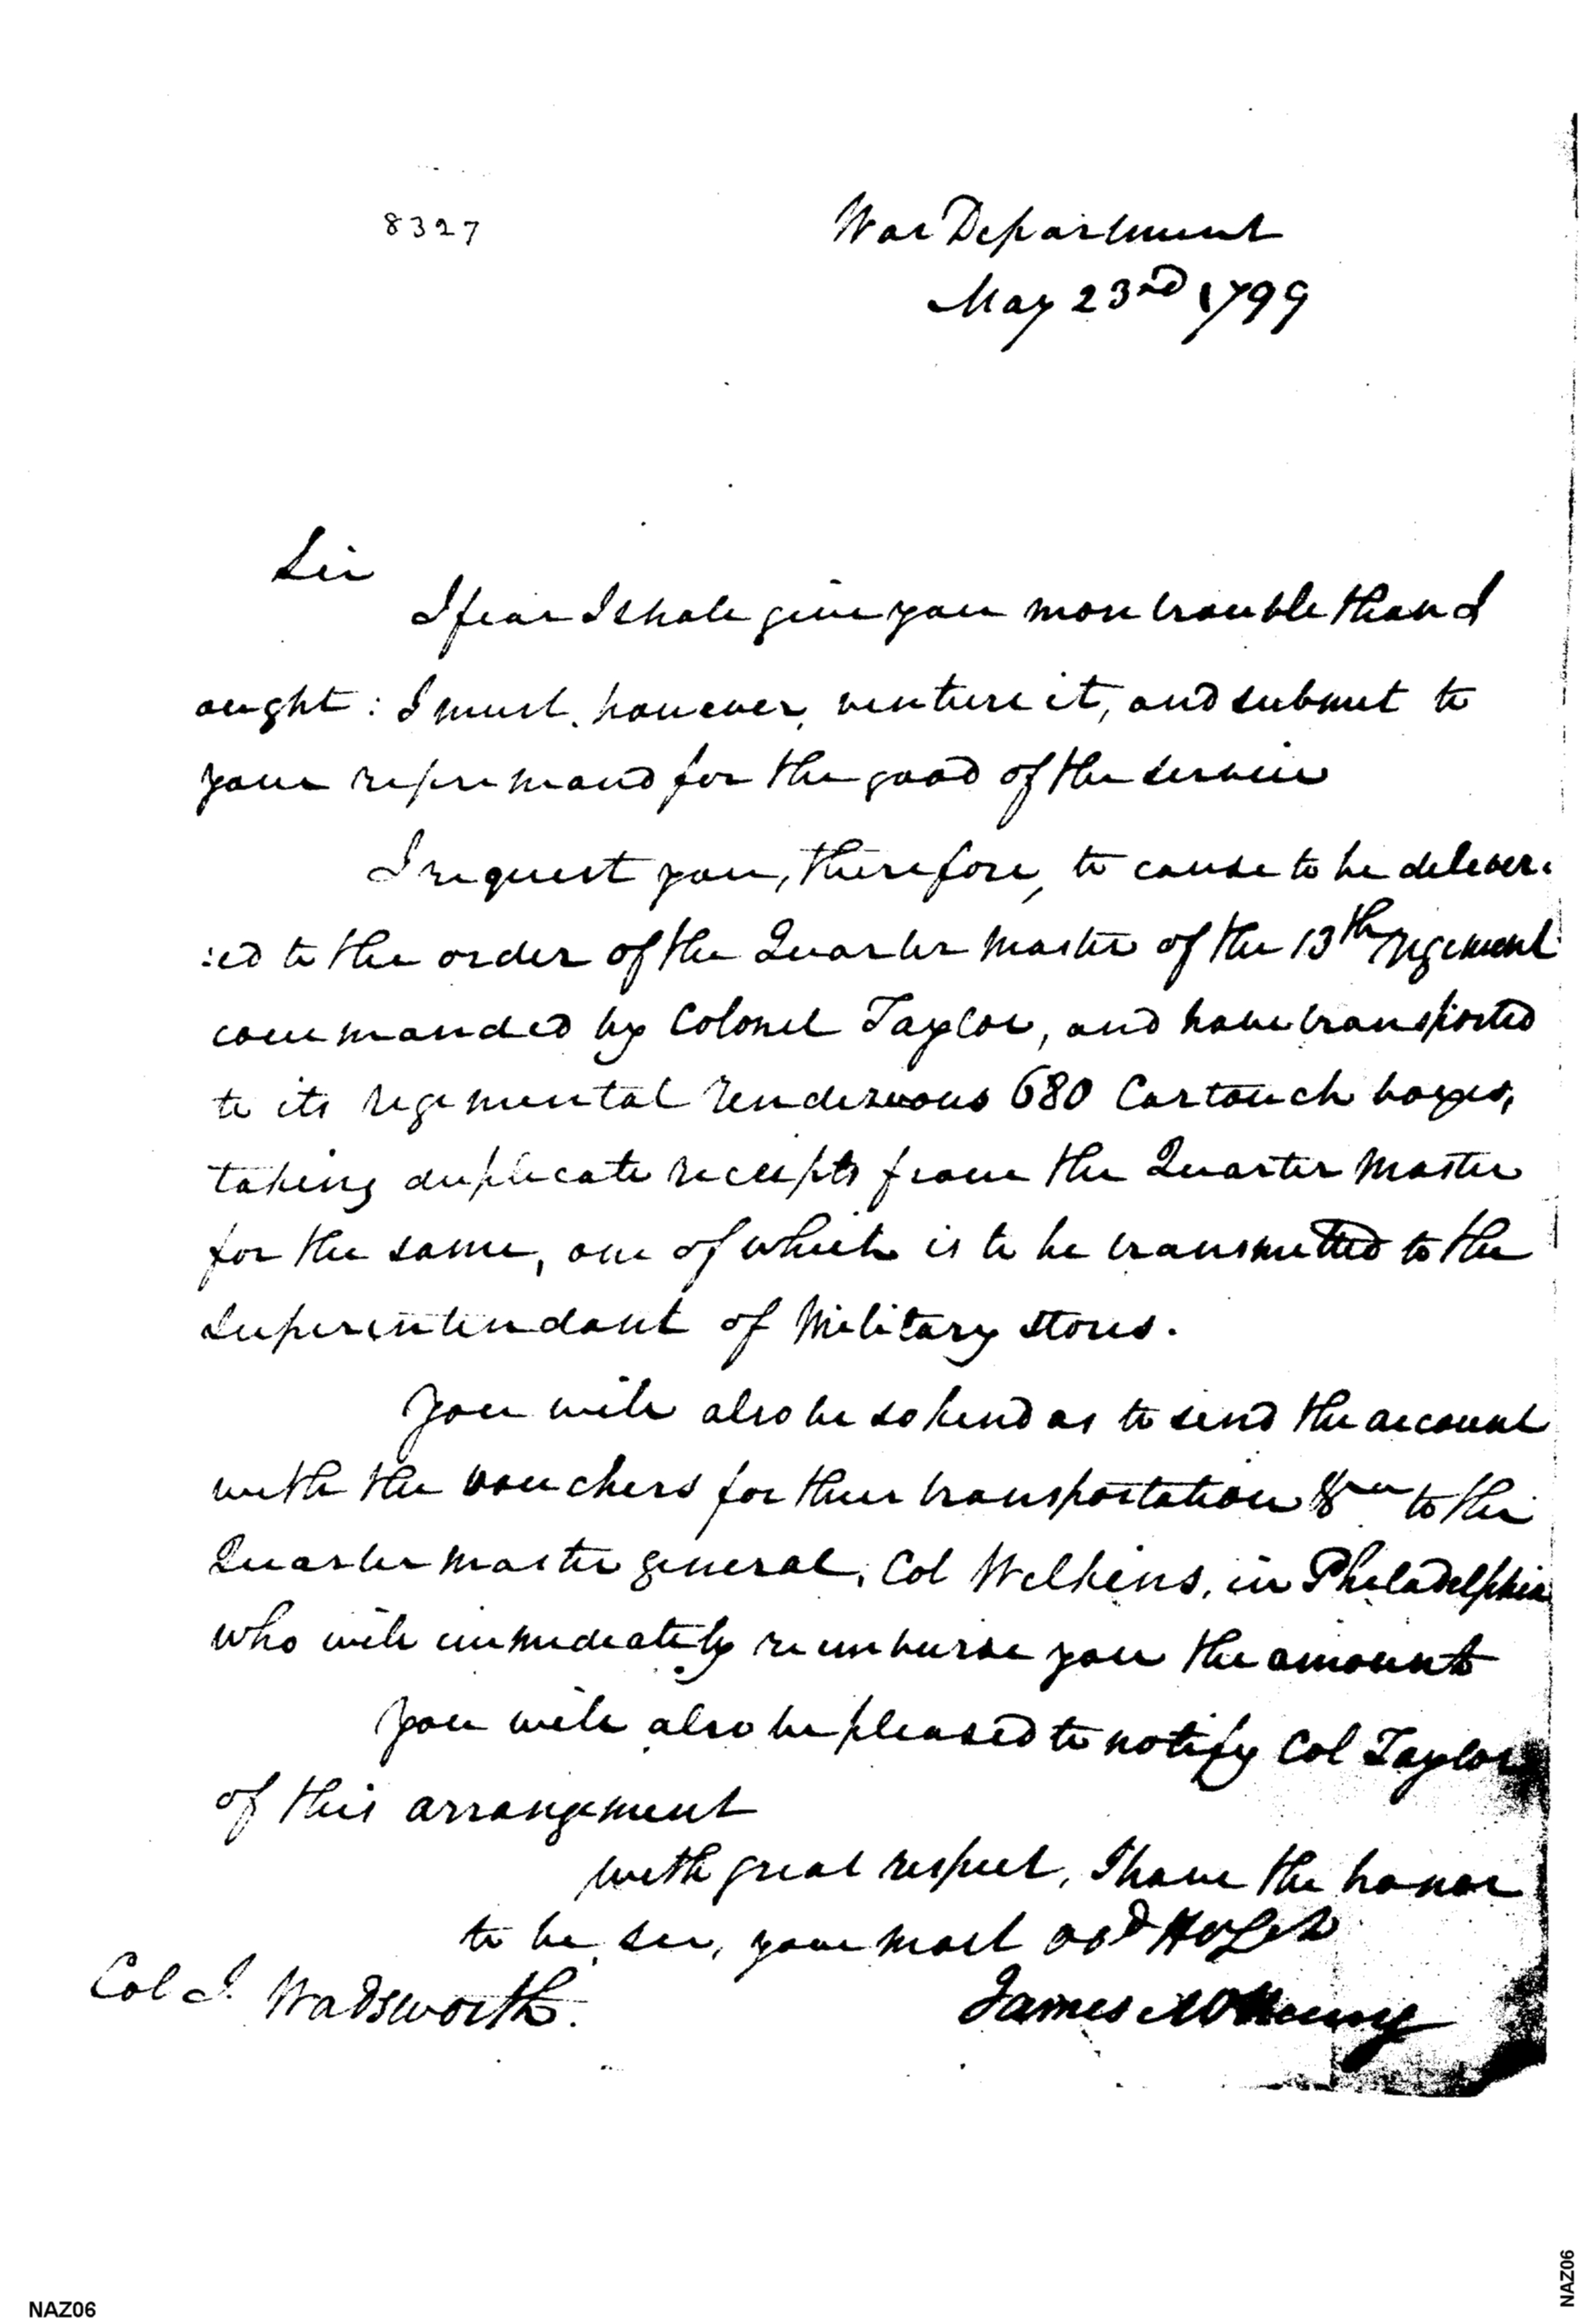 8327
War Department
May 23rd 1799
Sir
I fear I shall give you more trouble than I
ought: I must, however, venture it, and submit to
your reprimand for the good of the service
I request you, therefore, to cause to be deliver:
:ed to the order of the Quarter Master of the 13th regiment
commanded by Colonel Taylor, and have transported
to its regimental rendezvous 680 Cartouch boxes,
taking duplicate receipts from the Quarter Master
for the same, one of which is to be transmitted to the
Superintendant of Military stores.
You will also be so kind as to send the account
with the vouchers for their transportation &ca to the
Quarter Master general, Col Wilkins, in Philadelphia
who will immediately reimburse you the amount
You will also be pleased to notify Col Taylor
of this arrangement
with great respect, I have the honor
to be, sir, your most obd Hble St
Col J. Wadsworth.
James McHenry
NAZ06
NAZ06